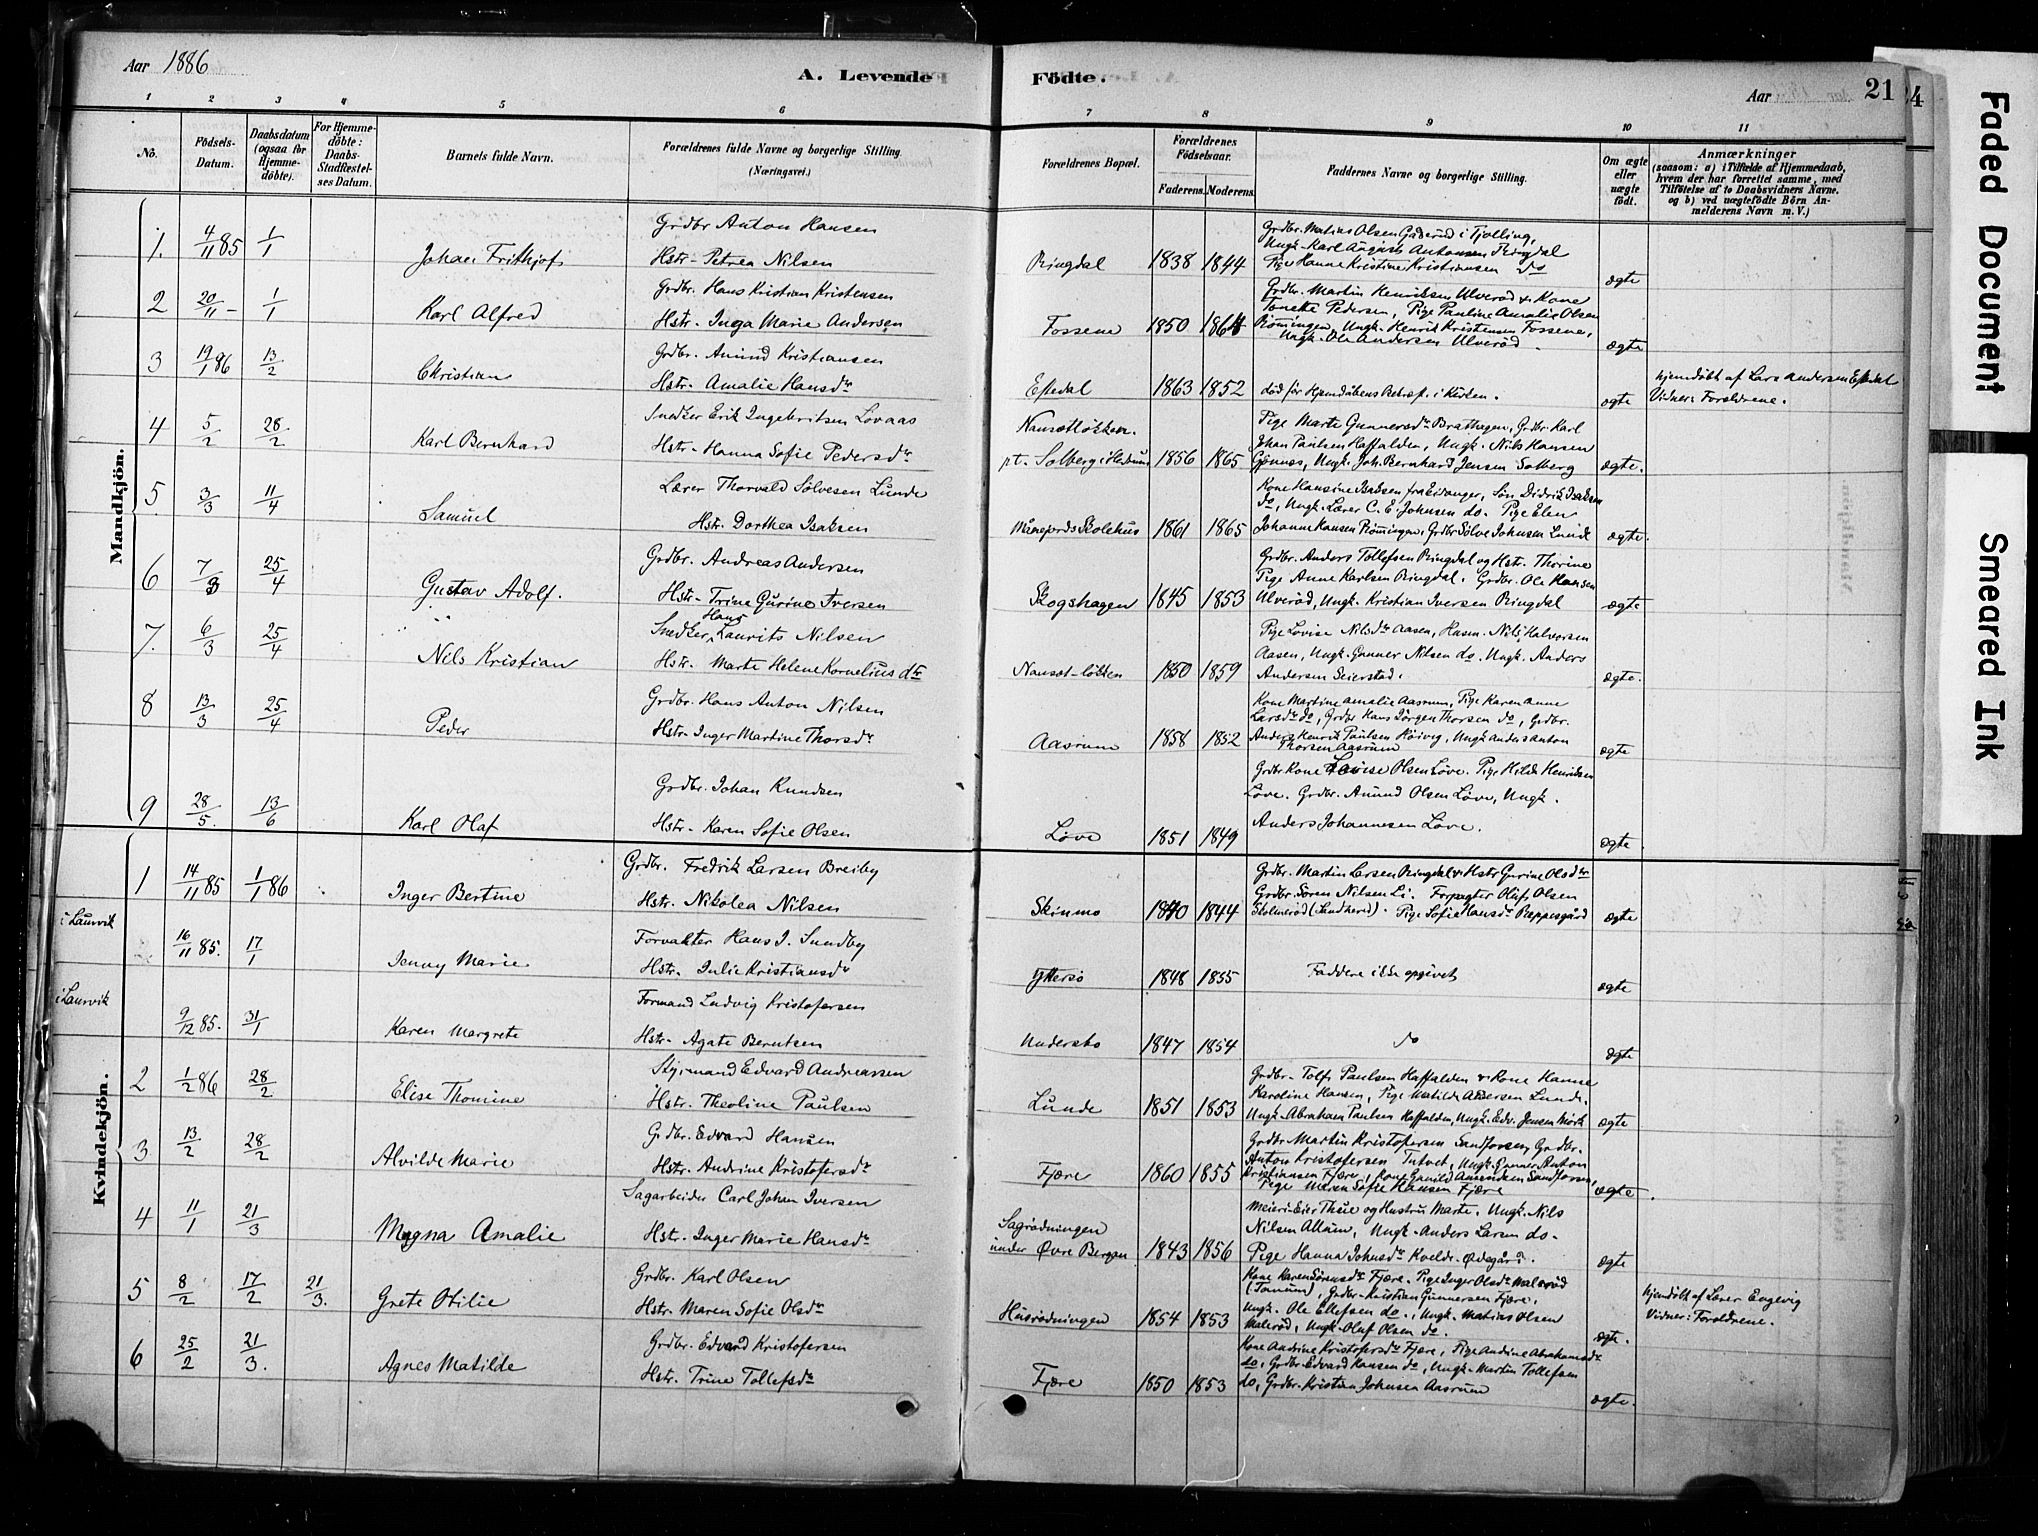 Aar 1886
A. Levende Födte.
Aar
21
24
1 2 3 4 5 6 7 8 9 10 11
No.
Födsels-Datum.
Daabsdatum (ogsaa for Hjemmedöbte).
For Hjemmedöbte: Daabs-Stadfæstelses Datum.
Barnets fulde Navn.
Forældrenes fulde Navne og borgerlige Stilling. (Næringsvei.)
Forældrenes Bopæl.
Forældrenes Födselsaar.
Faderens. Moderens.
Faddernes Navne og borgerlige Stilling.
Om ægte eller uægte födt.
Anmærkninger
(saasom: a) i Tilfælde af Hjemmedaab,
hvem der har forrettet samme, med
Tilföielse af to Daabsvidners Navne.
og b) ved uægtefödte Börn Anmelderens Navn m. V.)
Mandkjön.
1. 4/11 85 1/1 Johan Frithjof
Grdbr Anton Hansen
Hstr- Petrea Nilsen
Ringdal 1838 1844
Grdbr. Matias Olsen Gaderød i Tjølling,
Ungk- Karl August Antonsen Ringdal
Pige Hanne Kristine Kristiansen do
ægte
2 20/11 - 1/1 Karl Alfred
Grdbr. Hans Kristian Kristensen
Hstr- Inga Marie Andersen
Fossene 1850 1864
Grdbr. Martin Henriksen Ulverød & Kone
Tonette Pedersen, Pige Pauline Amalie Olsen
Rømingen, Ungk- Henrik Kristensen Fossene,
Ungk- Ole Andersen Ulverød
ægte
3 19/1 86 13/2 Christian
Grdbr. Amund Kristiansen
Hstr. Amalie Hansdtr
Eftedal 1863 1852
død før Hjemdåbens Bekræft. i Kirken.
ægte
hjemdöbt af Lars Andersen Eftedal
Vidner: Foreldrene.
4 5/2 28/2 Karl Bernhard
Snedker Erik Ingebritsen Lovaas
Hstr- Hanna Sofie Pedersdtr
Nansetløkken.
pt. Solberg i Hedrum 1856 1865
Pige Marte Gunnersdtr Brathagen, Grdbr. Karl
Johan Paulsen Haffalden, Ungk- Nils Hansen
Gjønnes, Ungk. Joh. Bernhard Jensen Solberg
ægte.
5. 3/3 11/4 Samuel
Lærer Thorvald Sølvesen Lunde
Hstr. Dorthea Isaksen
Månejords Skolehus 1861 1865
Kone Hansine Isaksen fra Eidanger, Søn Didrik Isaksen
do, Ungk- Lærer C. E. Johnsen do. Pige Elen
Johanne Hansen Rømingen, Grdbr Sølve Johnsen Lunde
ægte.
6 7/3 25/4 Gustav Adolf.
Grdbr. Andreas Andersen
Hstr- Trine Gurine Iversen
Skogshagen 1845 1853
Grdbr. Anders Tollefsen Ringdal og Hstr. Thorine
Pige Anne Karlsen Ringdal. Grdbr. Ole Hansen
Ulverød, Ungk- Kristian Iversen Ringdal
ægte
7. 6/3 25/4 Nils Kristian
Hans
Snedker Laurits Nilsen
Hstr- Marte Helene Kornelius dtr
Nanset-løkken 1850 1859
Pige Lovise Nilsdtr Aasen, Husm. Nils Halvorsen
Aasen, Ungk. Gunner Nilsen do. Ungk. Anders
Andersen Seierstad.
ægte.
8 13/3 25/4 Peder
Grdbr. Hans Anton Nilsen
Hstr- Inger Martine Thorsdtr
Aasrum 1858 1852
Kone Martine Amalie Aasrum, Pige Karen Anne
Larsdtr do, Grdbr Hans Jörgen Thorsen do, Grdbr.
Anders Henrik Paulsen Röivig, Ungk Anders Anton
Thorsen Aasrum
ægte
9 28/5. 13/6 Karl Olaf
Grdbr. Johan Knudsen
Hstr- Karen Sofie Olsen
Løve 1851 1849
Grdbr Kone Lovise Olsen Løve. Pige Hilda Henriksen
Løve. Grdbr. Amund Olsen Løve, Ungk.
Anders Johannesen Løve.
ægte
Kvindekjön.
1 14/11 85 1/1 86 Inger Bertine
Grdbr. Fredrik Larsen Breiby
Hstr. Nikolea Nilsen
Skinmo 1840 1844
Grdbr. Martin Larsen Ringdal & Hstr Gurine Olsdtr
Grdbr. Søren Nilsen Li. Forpagter Oluf Olsen
Skolmerød (Sandherd). Pige Sofie Hansdtr Præppesgård
ægte
i Laurvik
16/11 85. 17/1 Jenny Marie
Forvalter Hans J. Sundby
Hstr- Julie Kristiansdtr
Yttersø 1848 1855
Faddere ikke opgivet
ægte
i Laurvik
9/12 85. 31/1 Karen Margrete
Formand Ludvig Kristofersen
Hstr- Agate Berntsen
Undersbo 1847 1854
do
ægte
2 1/2 86 28/2 Elise Thomine
Styrmand Edvard Andreassen
Hstr. Theoline Paulsen
Lunde 1851 1853
Grdbr- Tolfs Paulsen Haffalden & Kone Hanne
Karoline Hansen, Pige Matilde Andersen Lunde.
Ungk- Abraham Paulsen Haffalden, Ungk. Edv. Jensen Mörk
ægte
3 13/2 28/2 Alvilde Marie
Grdbr. Edvard Hansen
Hstr. Andrine Kristofersdtr
Fjære 1860 1855
Grdbr Martin Kristofersen Sandforsen, Grdbr.
Anton Kristofersen Tutvet, Ungk. Gunner Anton
Kristiansen Fjære, Kone Gunild Amundsen Sandforsen,
Pige Maren Sofie Hansen Fjære
ægte.
4 11/1 21/3 Magna Amalie
Sagarbeider Carl Johan Iversen
Hstr. Inger Marie Hansdtr
Sagrødningen
under Øvre Bergan 1843 1856
Meieri-Eier Thue og Hustru Marte. Ungk. Nils
Nilsen Allum, Ungk- Anders Larsen do.
Pige Hanna Johnsdtr Kvelde-Ødegård.
ægte
5 8/2 17/2 21/3. Grete Otilie
Grdbr. Karl Olsen
Hstr. Maren Sofie Olsdtr
Husrødningen 1854 1853
Kone Karen Sörensdtr Fjære. Pige Inger Olsdtr Malerød
(Tanum), Grdbr- Kristian Gunnersen Fjære,
Ungk. Ole Ellefsen do., Ungk- Matias Olsen
Malerød, Ungk- Oluf Olsen do.
ægte.
hjemdöbt af Lærer Engevig
Vidner: Foreldrene.
6 25/2 21/3. Agnes Matilde
Grdbr. Edvard Kristofersen
Hstr. Trine Tollefsdtr
Fjære 1850 1853
Kone Andrine Kristofersdtr Fjære, Pige Andine Abrahamsdtr
do, Grdbr Edvard Hansen do, Ungk- Martin Tollefsen
do, Grdbr. Kristian Johnsen Aasrum
ægte.
Faded Document
Smeared Ink